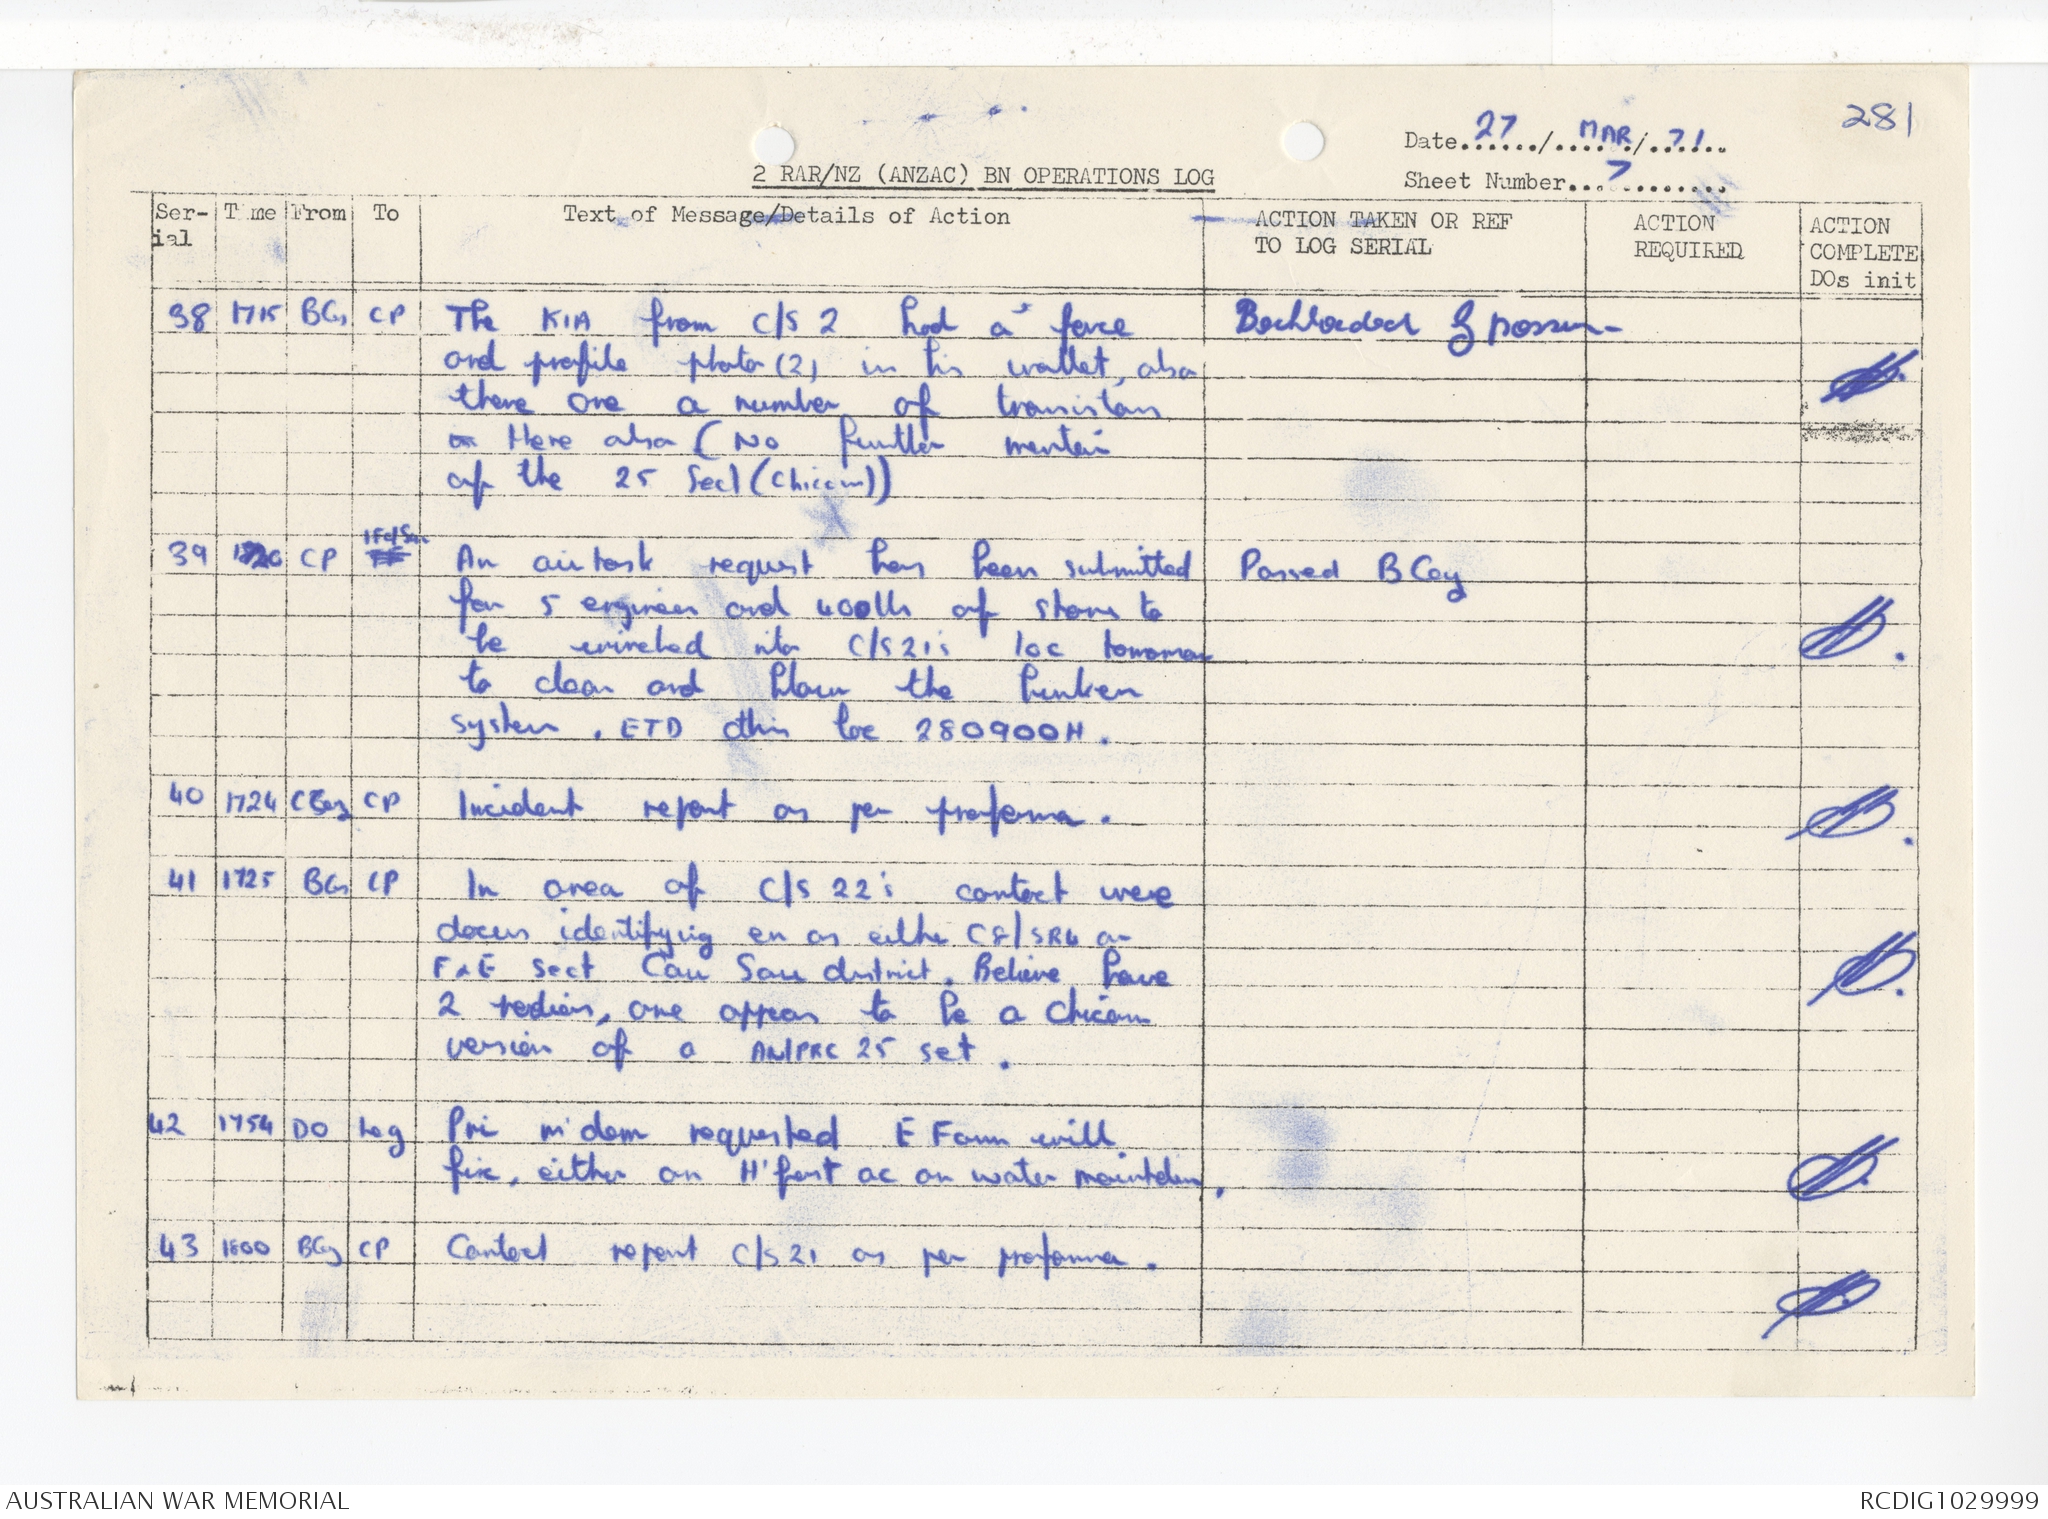 281
Date 27 / MAR / 71
2 RAR/NZ (ANZAC) BN OPERATIONS LOG
Sheet Number 7
Ser-ial Time From To Text of Message/Details of Action ACTION TAKEN OR REF TO LOG SERIAL ACTION REQUIRED ACTION COMPLETE DOs init
38 1715 BCoy CP The KIA from C/S 2 had a face Backloaded
and profile photo (2) in his wallet, also
there are a number of transistors
Here also (No further mention
of the 25 Set (Chicom))
39 1720 CP 1 Fd Sqn An air task request has been submitted Passed B Coy
for 5 engineers and 400lb of stores to
be winched into C/S 21's loc tomorrow
to clear and blow the bunker
system. ETD this loc 280900H.
40 1724 CCoy CP Incident report as per proforma.
41 1725 BCoy CP In area of C/S 22's contact were
docus identifying en as either C8/SR4 or
F&E sect Cau Sau district. Believe have
2 radios, one appears to be a Chicom
version of a AN/PRC 25 set.
42 1754 DO Log Pri m'dem requested E Farm will
fire, either on H'port ac or water maintdem.
43 1800 BCoy CP Contact report C/S 21 as per proforma.
AUSTRALIAN WAR MEMORIAL
RCDIG1029999